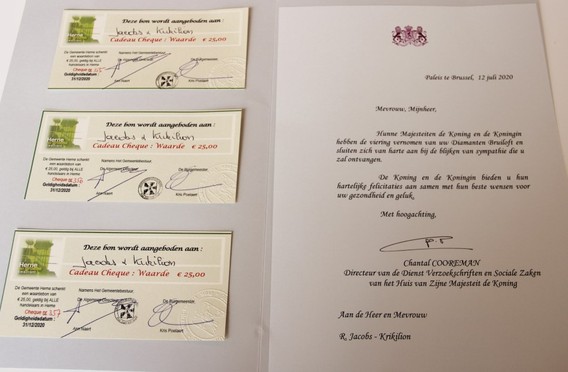 Herne
Deze bon wordt aangeboden aan :
Jacobs & Krikilion
Cadeau Cheque : Waarde € 25,00
De Gemeente Herne schenkt
een waardebon van
€ 25,00, geldig bij ALLE
handelaars in Herne
Cheque nr
Geldigheidsdatum :
31/12/2020
Namens Het Gemeentebestuur,
De Burgemeester,
Kris Poelaert
Herne
Deze bon wordt aangeboden aan :
Jacobs & Krikilion
Cadeau Cheque : Waarde € 25,00
De Gemeente Herne schenkt
een waardebon van
€ 25,00, geldig bij ALLE
handelaars in Herne
Cheque nr 356
Geldigheidsdatum :
31/12/2020
Namens Het Gemeentebestuur,
De Burgemeester,
Kris Poelaert
Herne
Deze bon wordt aangeboden aan :
Jacobs & Krikilion
Cadeau Cheque : Waarde € 25,00
De Gemeente Herne schenkt
een waardebon van
€ 25,00, geldig bij ALLE
handelaars in Herne
Cheque nr 357
Geldigheidsdatum :
31/12/2020
Namens Het Gemeentebestuur,
De Burgemeester,
Kris Poelaert
Paleis te Brussel, 12 juli 2020
Mevrouw, Mijnheer,
Hunne Majesteiten de Koning en de Koningin
hebben de viering vernomen van uw Diamanten Bruiloft en
sluiten zich van harte aan bij de blijken van sympathie die u
zal ontvangen.
De Koning en de Koningin bieden u hun
hartelijke felicitaties aan samen met hun beste wensen voor
uw gezondheid en geluk.
Met hoogachting,
Chantal COOREMAN
Directeur van de Dienst Verzoekschriften en Sociale Zaken
van het Huis van Zijne Majesteit de Koning
Aan de Heer en Mevrouw
R. Jacobs - Krikilion